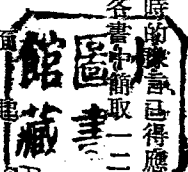 時的豫言已得應
各書中簡取一二
圖書
館藏